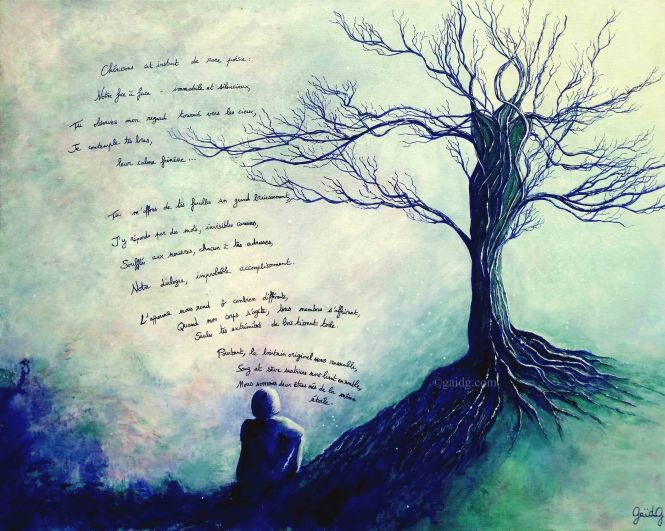 Chérissons cet instant de rare poésie.
Notre face à face - immobile et silencieux,
Tu observes mon regard tourné vers les cieux,
Je contemple tes bras,
leur calme frénésie...
Tu m'offres de tes feuilles un grand bruissement,
J'y réponds par des mots, invisibles caresses,
Soufflés aux rousses, chacun à tes adresses,
Notre dialogue, improbable accomplissement.
L'apparence nous rend ô combien différents,
Quand mon corps s'agite, tes membres s'affirment,
Seules tes extrémités de bois tissent toile.
Pourtant, le lointain originel nous ressemble,
Sang et sève matrices nous lient ensemble,
Nous sommes deux êtres nés de la même
étoile.
©gaidg.com
GaïdG